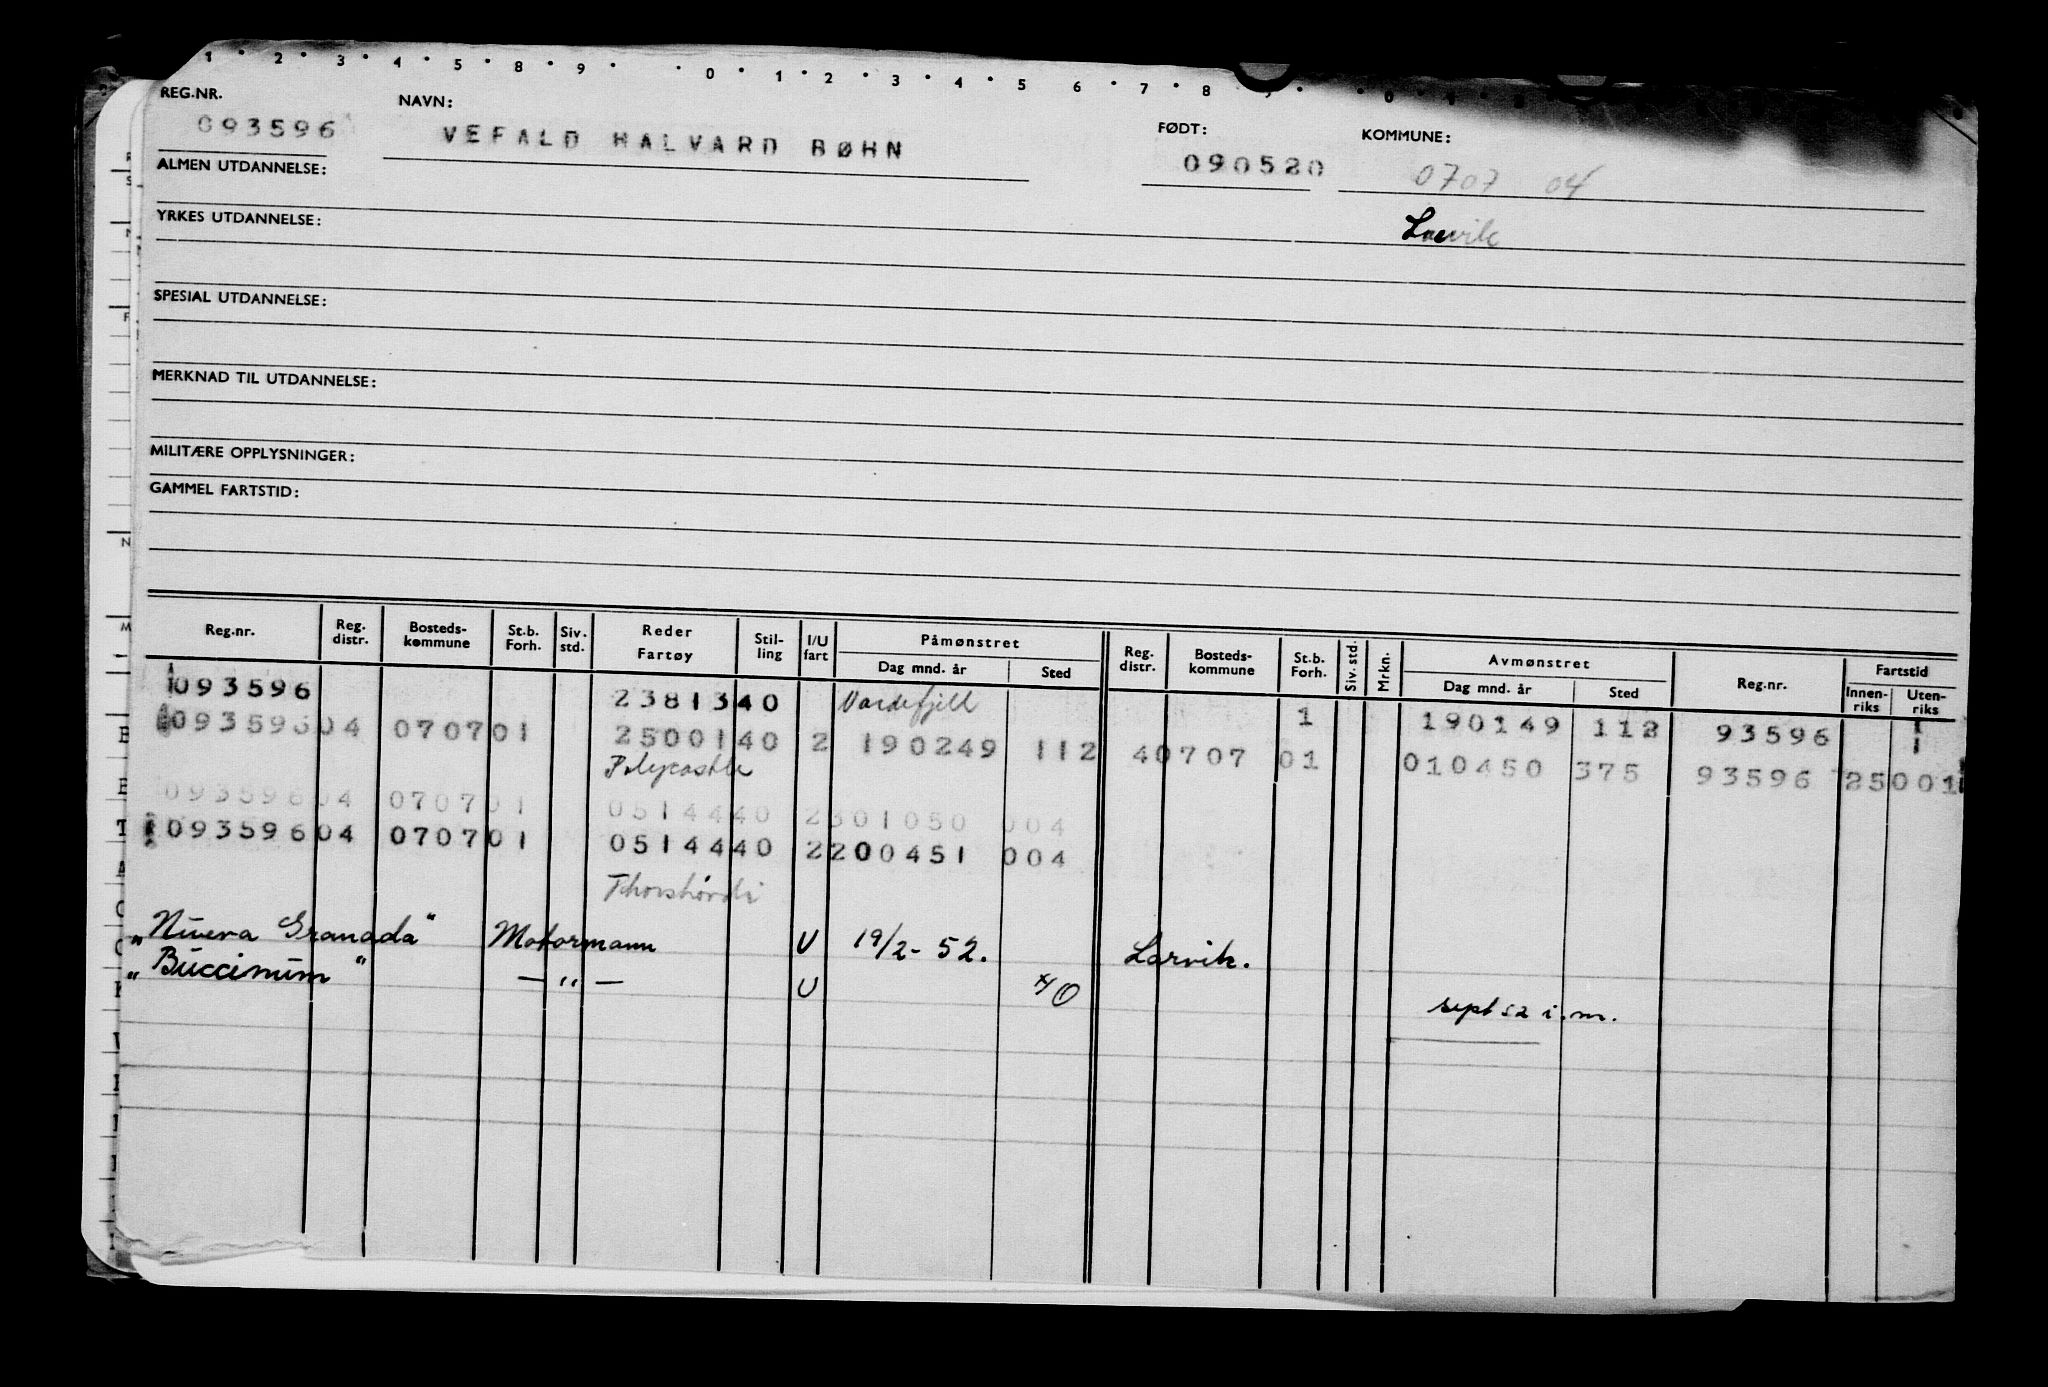 1 · 2 · 3 · 4 · 5 · 8 · 9 · · 0 · 1 · 2 · 3 · 4 · 5 6 · 7 · 8
REG.NR. NAVN: FØDT: KOMMUNE:
093596 VEFALD HALVARD BØHN 090520 0707 04
ALMEN UTDANNELSE:
YRKES UTDANNELSE: Larvik
SPESIAL UTDANNELSE:
MERKNAD TIL UTDANNELSE:
MILITÆRE OPPLYSNINGER:
GAMMEL FARTSTID:
Reg.nr. Reg. distr. Bosteds-kommune St.b. Forh. Siv. std. Reder Fartøy Stil-ling I/U fart Påmønstret Dag mnd. år Sted Reg. distr. Bosteds-kommune St.b. Forh. Siv. std. Mrkn. Avmønstret Dag mnd. år Sted Reg.nr. Fartstid Innen-riks Uten-riks
093596 2381340 Vardefjell 1 190149 112 93596
09359604 070701 2500140 2 190249 112 40707 01 010450 375 93596 25001
Polycastle
09359604 070701 0514440 2301050 004
09359604 070701 0514440 2200451 004
Thorshørdi
"Nueva Granada" Motormann U 19/2-52. Larvik.
"Buccinum" — " — U sept 52 i.m.